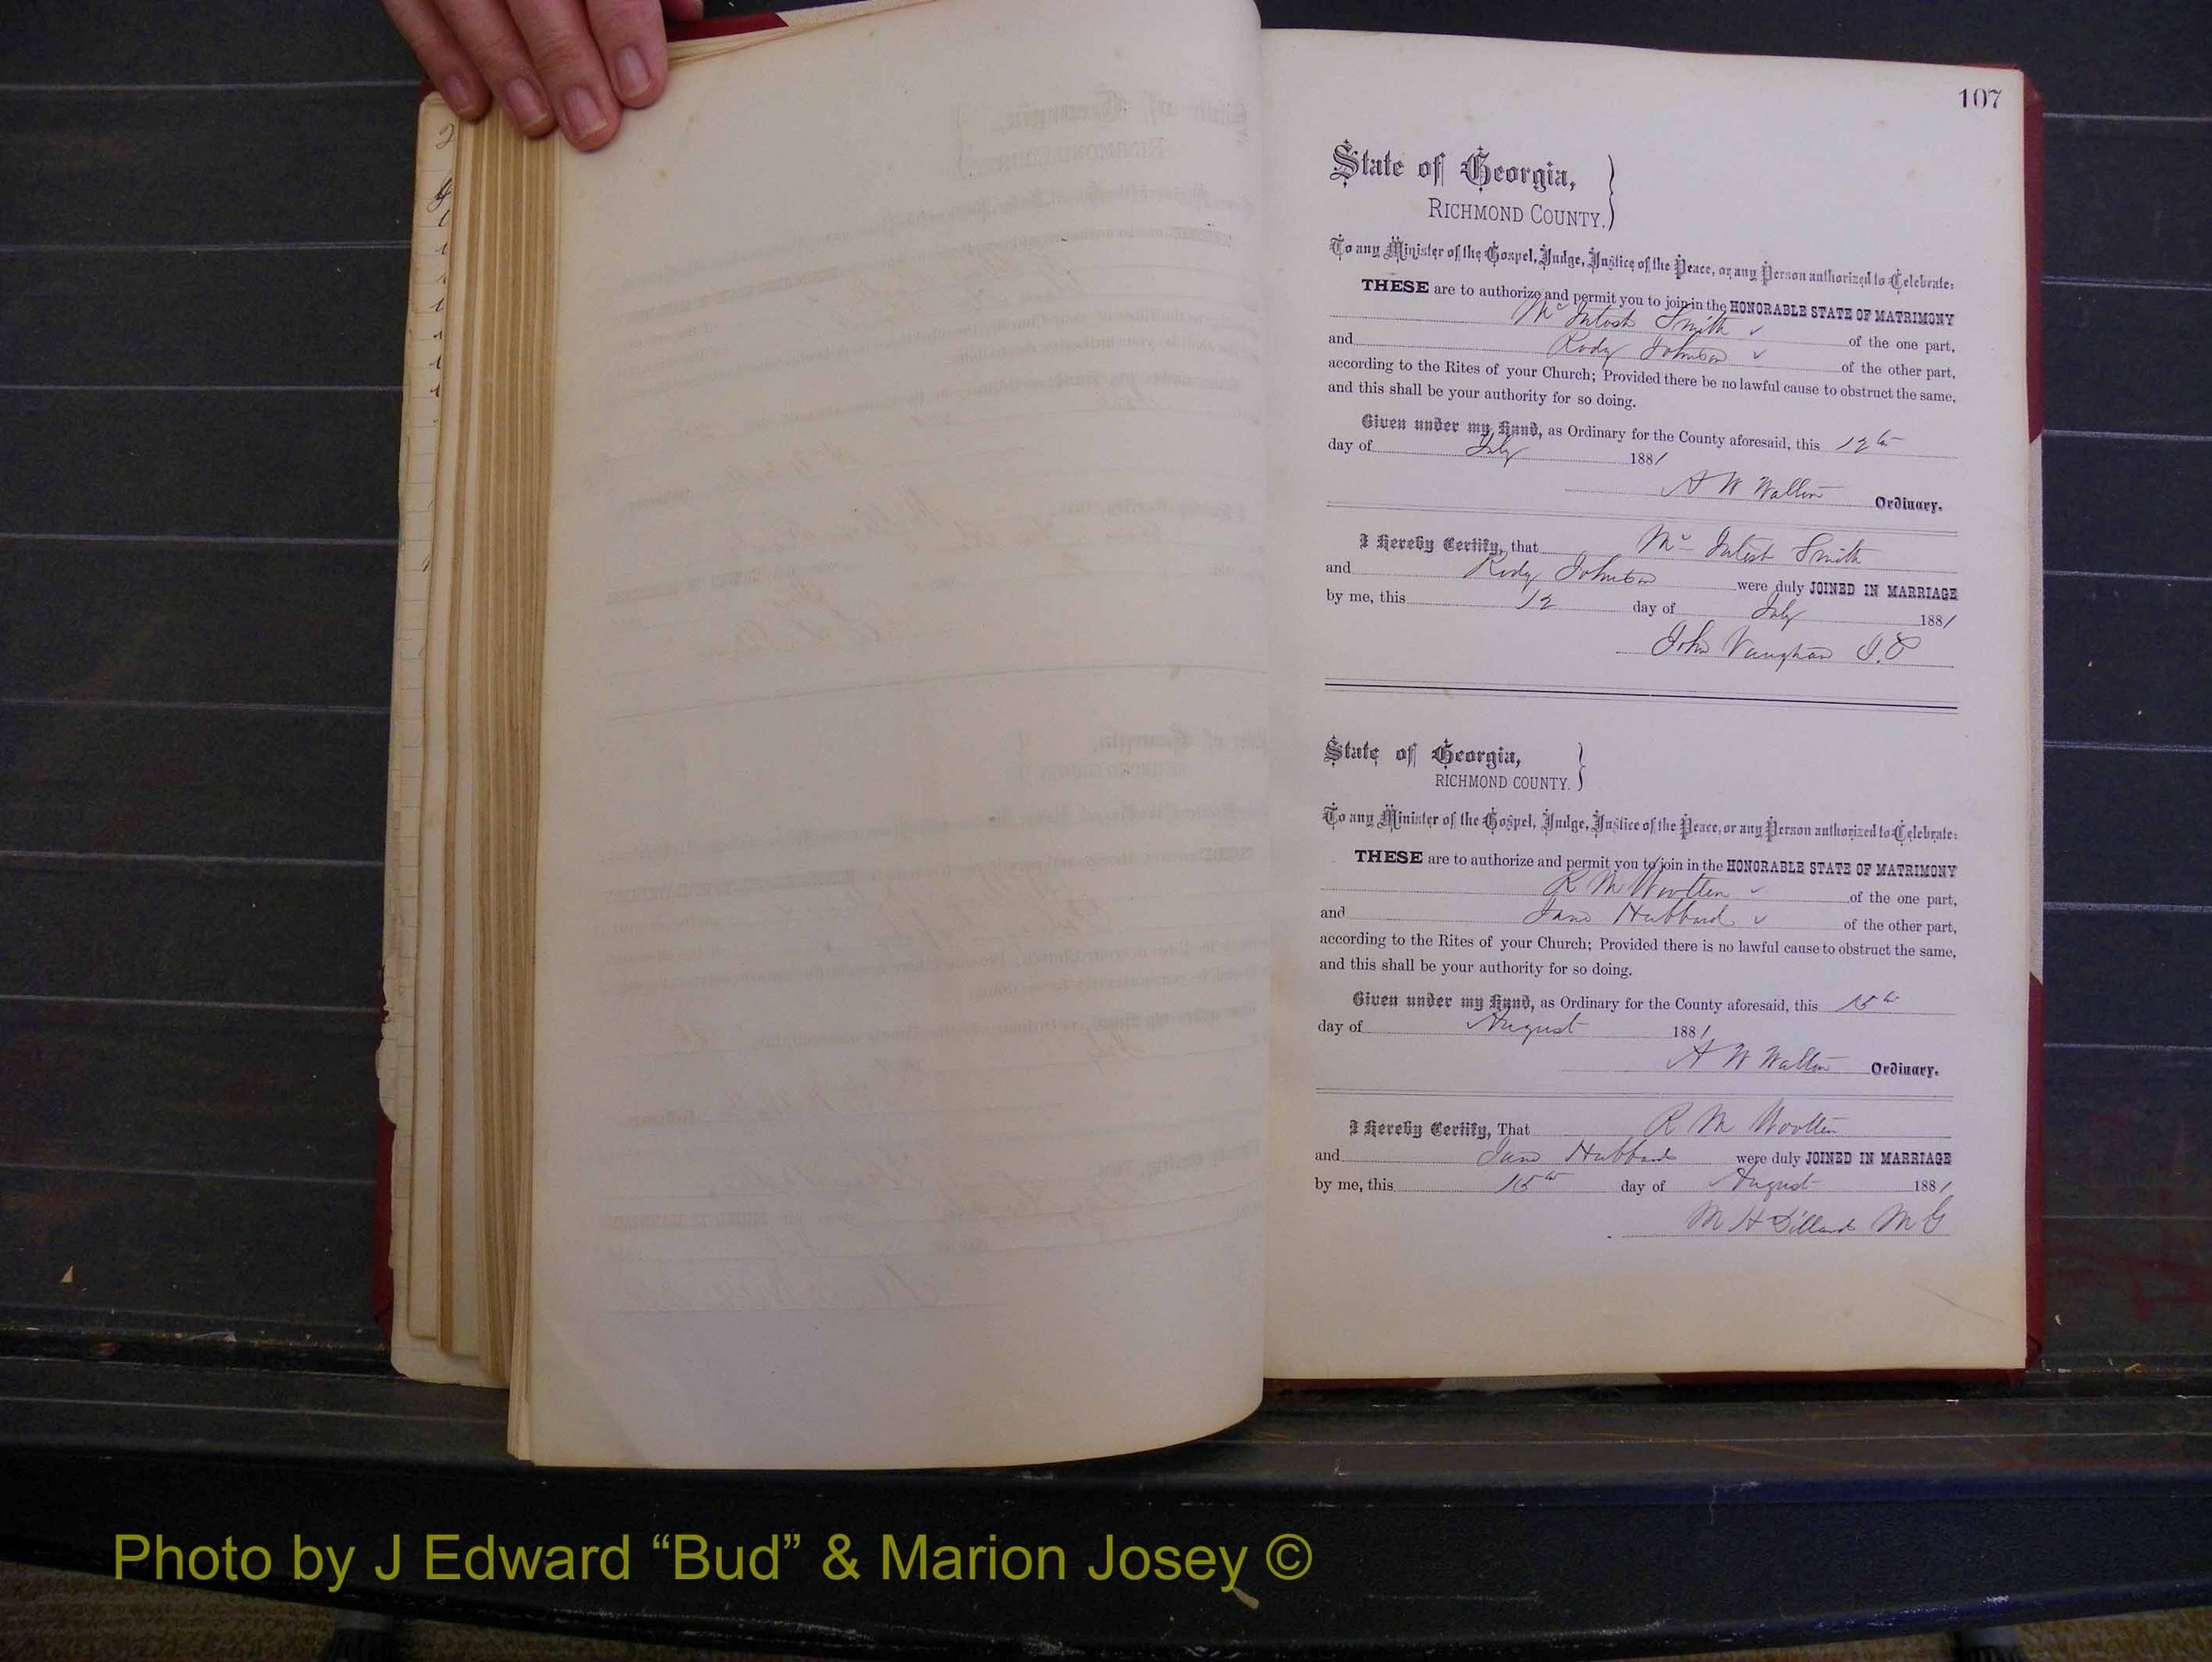 107
State of Georgia,
RICHMOND COUNTY.
To any Minister of the Gospel, Judge, Justice of the Peace, or any Person authorized to Celebrate:
THESE are to authorize and permit you to join in the HONORABLE STATE OF MATRIMONY
Mc Intosh Smith of the one part,
and Rody Johnson of the other part,
according to the Rites of your Church; Provided there be no lawful cause to obstruct the same,
and this shall be your authority for so doing.
Given under my Hand, as Ordinary for the County aforesaid, this 12th
day of July 1881
A W Walton Ordinary.
I Hereby Certify, that Mc Intosh Smith
and Rody Johnson were duly JOINED IN MARRIAGE
by me, this 12 day of July 1881
John Vaughan J.P
State of Georgia,
RICHMOND COUNTY.
To any Minister of the Gospel, Judge, Justice of the Peace, or any Person authorized to Celebrate:
THESE are to authorize and permit you to join in the HONORABLE STATE OF MATRIMONY
R M Wootten of the one part,
and Jane Hubbard of the other part,
according to the Rites of your Church; Provided there is no lawful cause to obstruct the same,
and this shall be your authority for so doing.
Given under my Hand, as Ordinary for the County aforesaid, this 15th
day of August 1881
A W Walton Ordinary.
I Hereby Certify, That R M Wootten
and Jane Hubbard were duly JOINED IN MARRIAGE
by me, this 15th day of August 1881
M H Dillard M G
Photo by J Edward “Bud” & Marion Josey ©